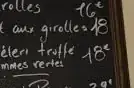 rolles 16€
t aux girolles 18
éleri truffé 18€
mmes vertes